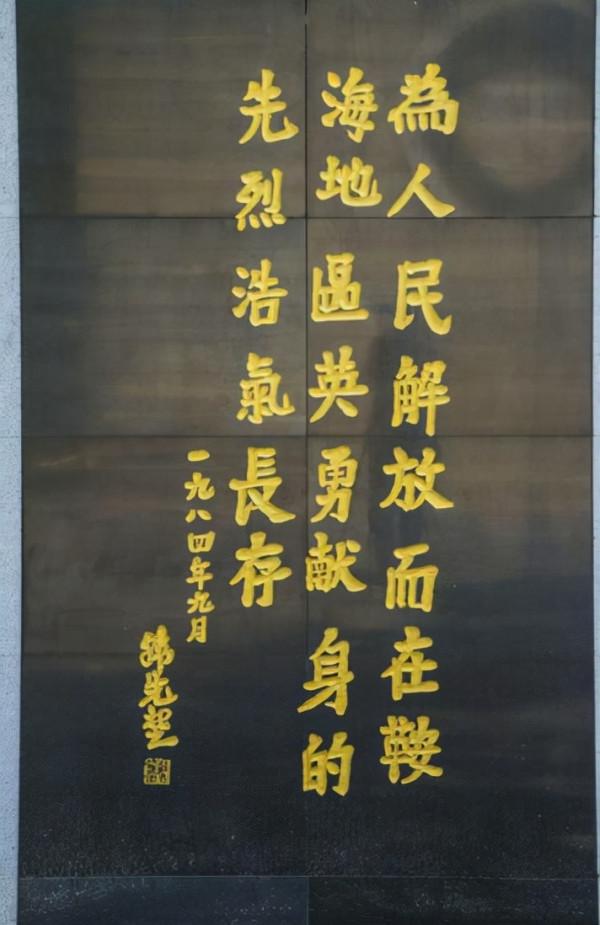 為人民解放而在鞍
海地區英勇献身的
先烈浩氣長存
一九八四年九月